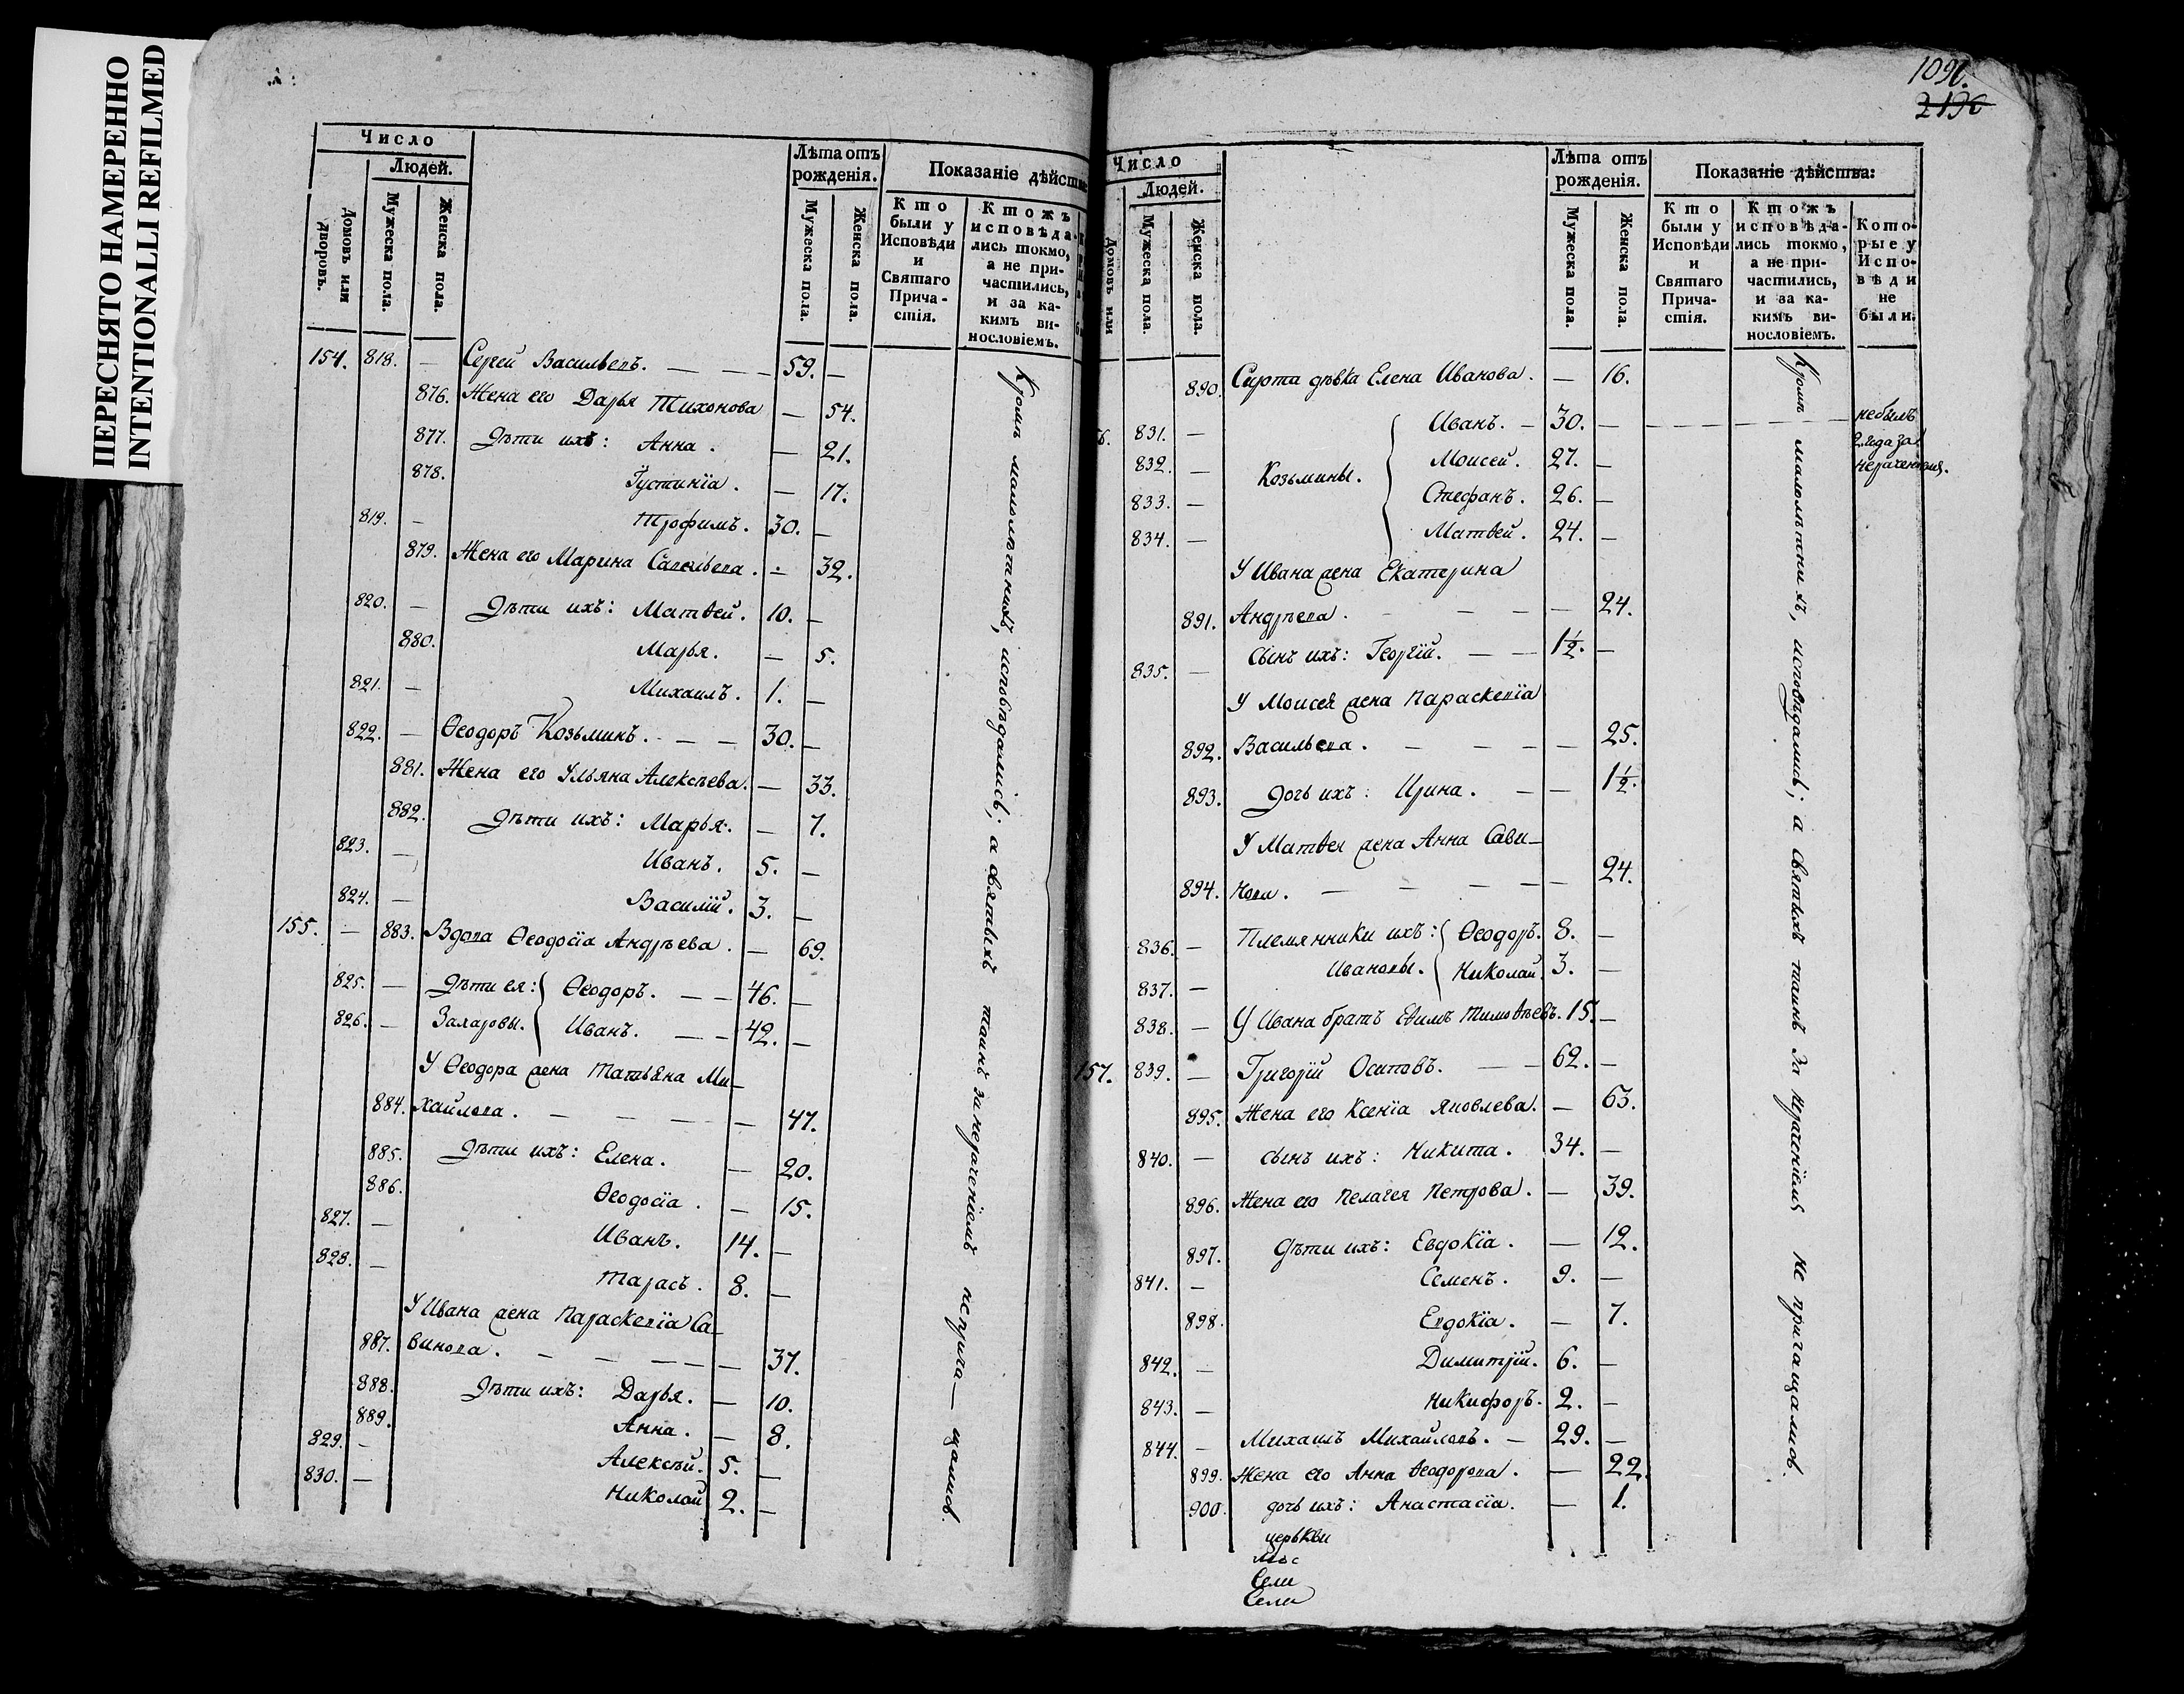 ПЕРЕСНЯТО НАМЕРЕННО
INTENTIONALLI REFILMED
Число
Людей.
Домовъ или дворовъ.
Мужеска пола.
Женска пола.
Лѣта отъ рожденія.
Мужеска пола.
Женска пола.
Показаніе дѣйств
Кто были у Исповѣди и Святаго Причастія.
Ктожъ исповѣдались токмо, а не причастились, и за какимъ винословіемъ.
154. 818. — Сергей Васильевъ. — — — 59. —
876. Жена его Дарья Тихонова — 54.
877. Дѣти ихъ: Анна. — 21.
878. Густинїа. — 17.
819. — Трофимъ. 30. —
879. Жена его Марина Савельева. — 32.
820. — Дѣти ихъ: Матѳей. 10. —
880. Марья. — 5.
821. — Михаилъ. 1. —
822. — Ѳеодоръ Козьминъ. — — 30. —
881. Жена его Ульяна Алексѣева. — 33.
882. Дѣти ихъ: Марья. — 7.
823. — Иванъ. 5. —
824. — Василій. 3. —
155. — 883. Вдова Ѳеодосїа Андрѣева. — 69.
825. — Дѣти ея: Ѳеодоръ. — — 46. —
826. — Захаровы. Иванъ. — — 42. —
У Ѳеодора жена Татьяна Ми-
884. хайлова. — — — — — 47.
885. Дѣти ихъ: Елена. — 20.
886. Ѳеодосїа. — 15.
827. — Иванъ. 14. —
828. — Тарасъ. 8. —
У Ивана жена Параскевїа Са-
887. винова. — — — — — 37.
888. Дѣти ихъ: Дарья. — 10.
889. Анна. — 8.
829. — Алексѣй. 5. —
830. — Николай 2. —
Кромѣ малолѣтнихъ, исповѣдались; а святыхъ таинъ за нераченіемъ неприча-щались.
1091.
219
Число
Людей.
Домовъ или
Мужеска пола.
Женска пола.
Лѣта отъ рожденія.
Мужеска пола.
Женска пола.
Показаніе дѣйства:
Кто были у Исповѣди и Святаго Причастія.
Ктожъ исповѣдались токмо, а не причастились, и за какимъ винословіемъ.
Которые у Исповѣди не были.
890. Сирота дѣвка Елена Иванова. — 16.
6. 831. — Иванъ. — 30. — — — — — — — небылъ
2. года за
нераченіемъ.
832. — Козьмины. Моисей. 27. —
833. — Стефанъ. 26. —
834. — Матѳей. 24. —
У Ивана жена Екатерина
891. Андрѣева. — — — — 24.
835. — сынъ ихъ: Георгїй. — — 1½. —
У Моисея жена Параскевїа
892. Васильева. — — — — 25.
893. дочь ихъ: Ирина. — — 1½.
У Матѳея жена Анна Сави-
894. нова. — — — — — 24.
836. — Племянники ихъ: Ѳеодоръ. 8. —
837. — Ивановы. Николай. 3. —
838. — У Ивана братъ Еѳимъ Тимоѳѣевъ. 15. —
157. 839. — Григорій Осиповъ. — — 62. —
895. Жена его Ксенїа Яковлева. — 63.
840. — сынъ ихъ: Никита. 34. —
896. Жена его Пелагея Петрова. — 39.
897. Дѣти ихъ: Евдокїа. — 12.
841. — Семенъ. 9. —
898. Евдокїа. — 7.
842. — Димитрїй. 6. —
843. — Никифоръ. 2. —
844. — Михаилъ Михайловъ. — 29. —
899. Жена его Анна Ѳеодорова. — 22.
900. дочь ихъ: Анастасїа. — 1.
церькви
Сели
Сели
Кромѣ малолѣтнихъ, исповѣдались; а святыхъ таинъ за нераченіемъ не причащались.